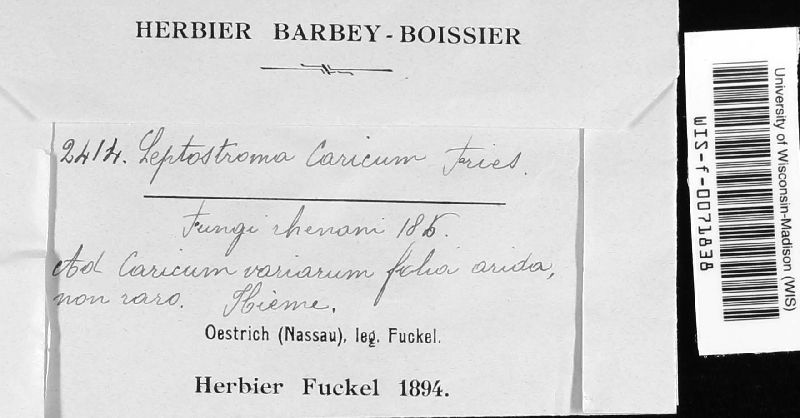 HERBIER BARBEY-BOISSIER
2414. Leptostroma Caricum Fries.
Fungi rhenani
Ad Caricum variarum folia arida,
non raro. Hieme.
Oestrich (Nassau), leg. Fuckel.
Herbier Fuckel 1894.
University of Wisconsin-Madison (WIS)
WIS-f-0071838